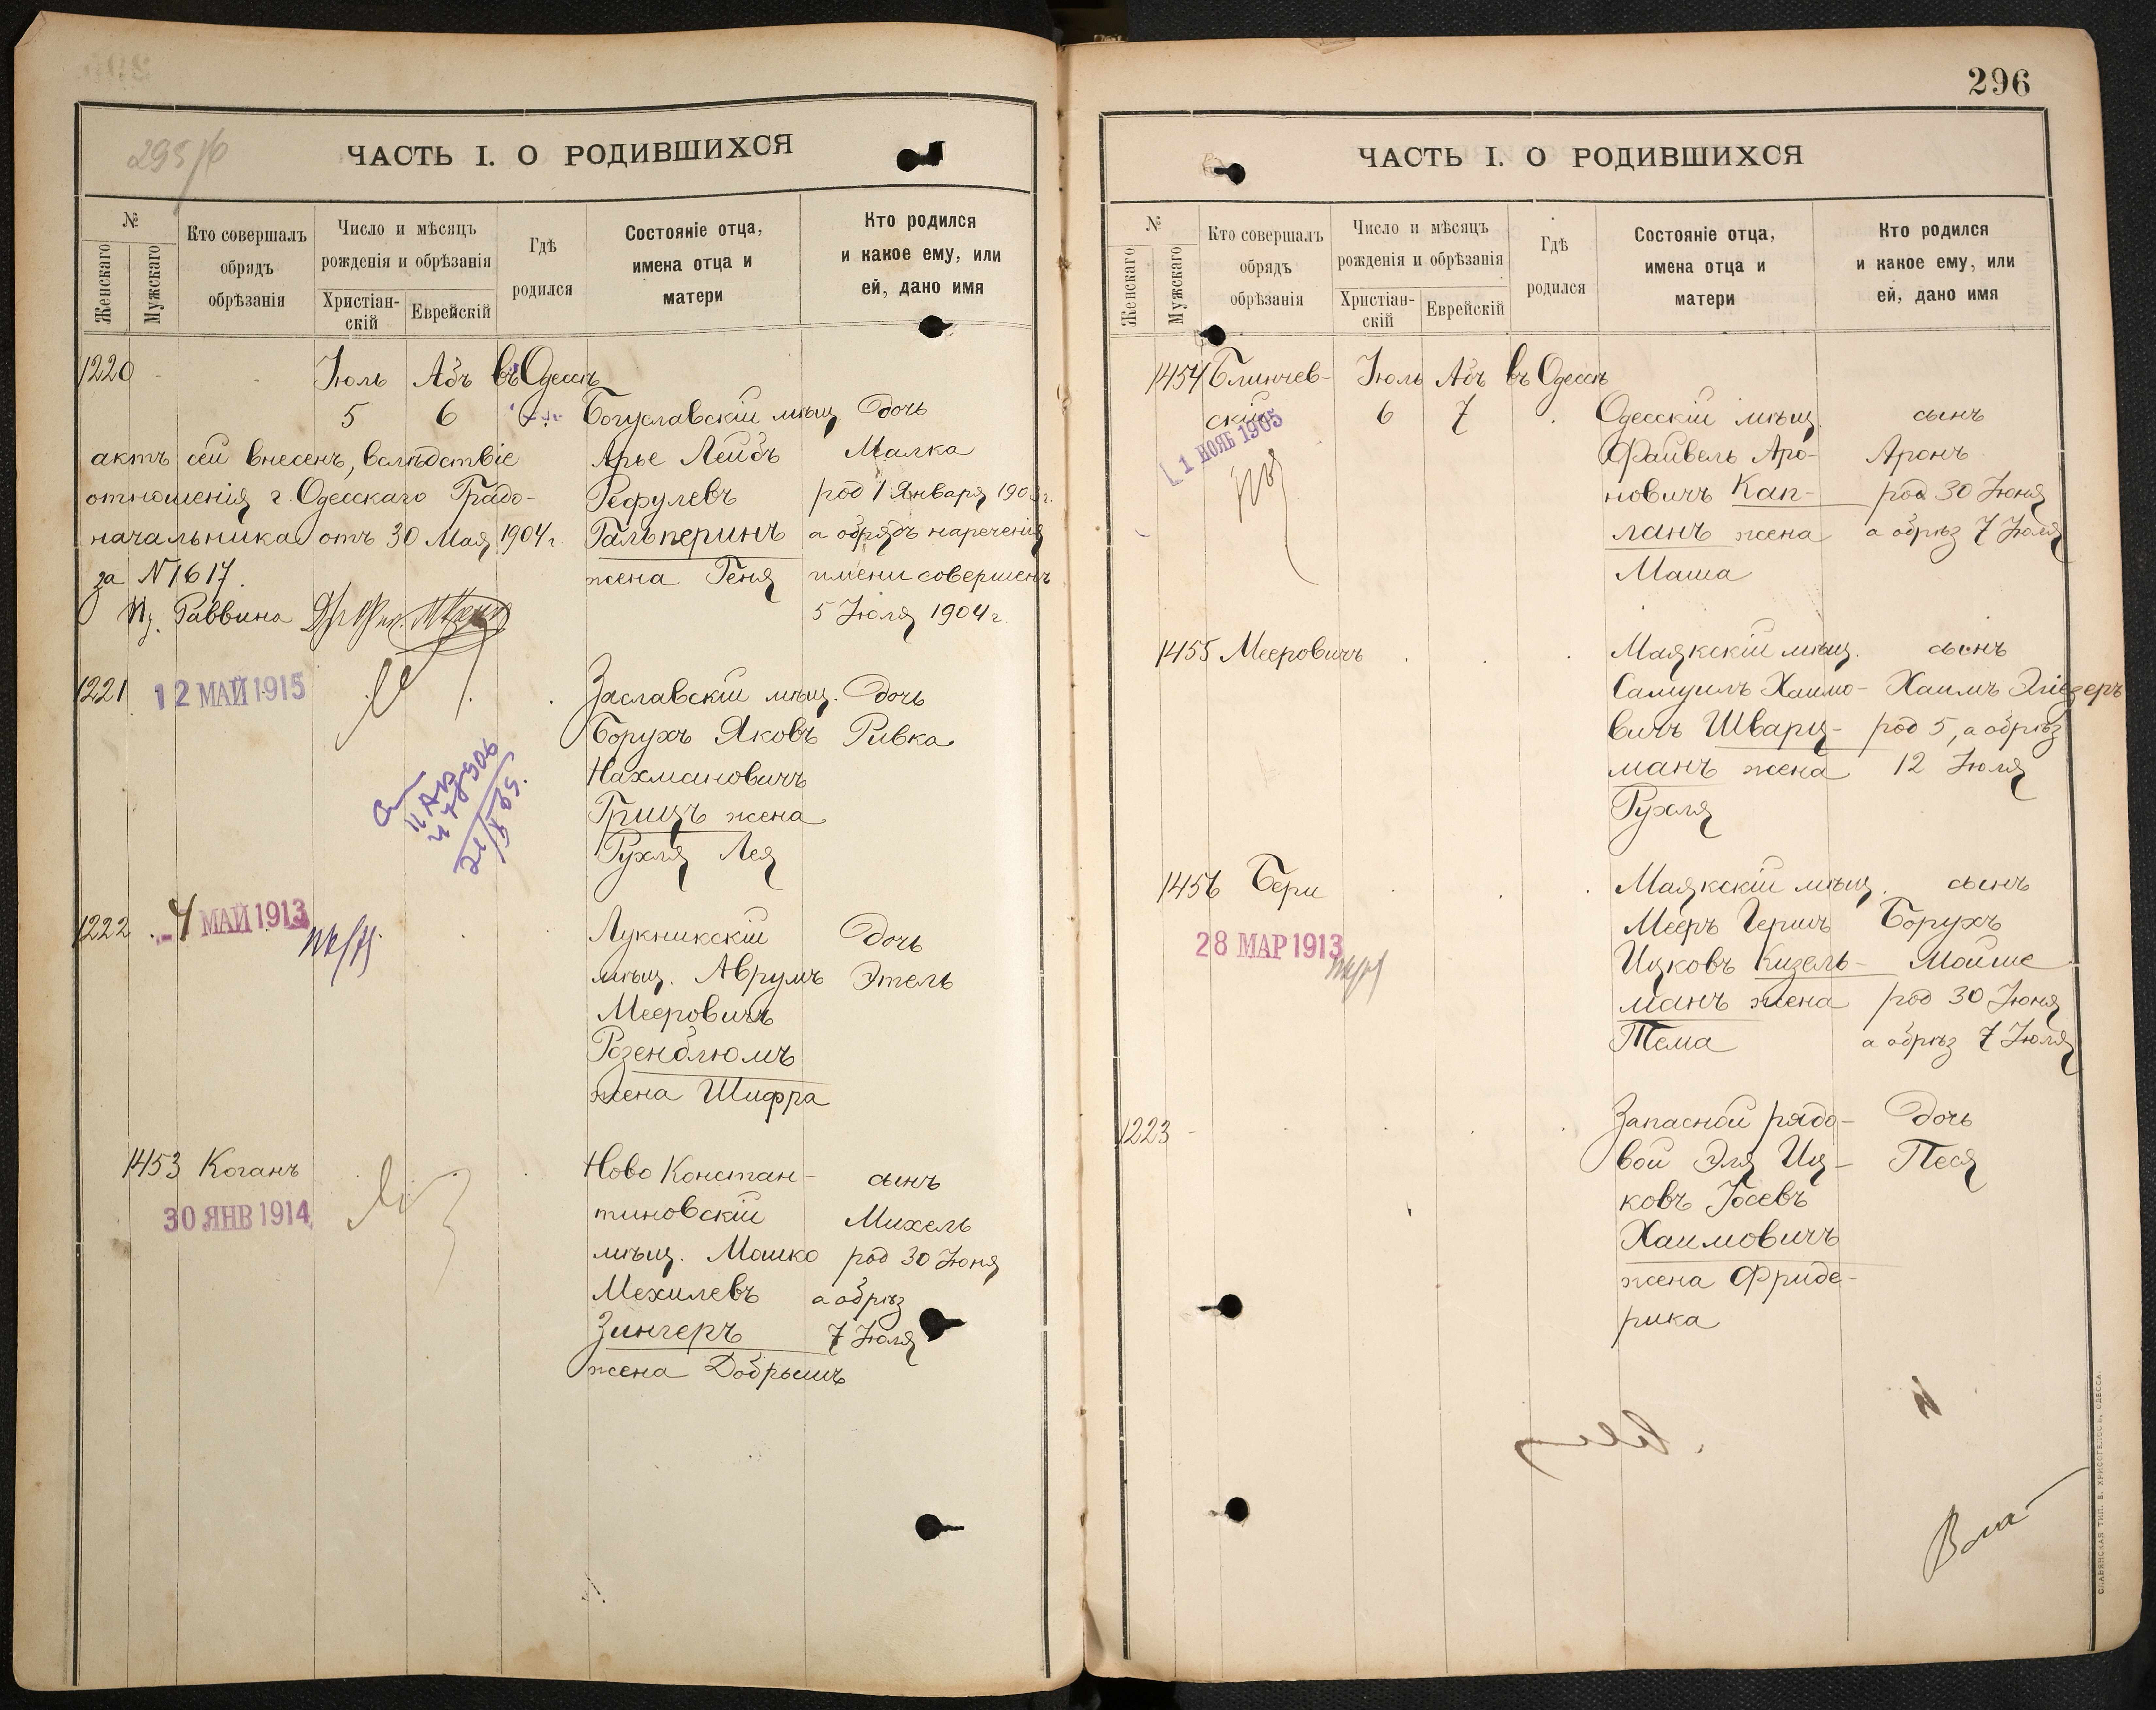 ЧАСТЬ I. О РОДИВШИХСЯ
№
Женскаго
Мужскаго
Кто совершалъ
обрядъ
обрѣзанія
Число и мѣсяцъ
рожденія и обрѣзанія
Христіан-
скій
Еврейскій
Гдѣ
родился
Состояніе отца,
имена отца и
матери
Кто родился
и какое ему, или
ей, дано имя
1220
Іюль Абъ въ Одессѣ
5 6
Богуславскій мѣщ. дочь
актъ сей внесенъ, вслѣдствіе
Арье Лейбъ Малка
отношенія г. Одесскаго Градо-
Рефулевъ род 1 Января
начальника отъ 30 Мая 1904 г.
Гальперинъ а обрядъ нареченія
за N 1617.
жена Геня имени совершенъ
Раввина
5 Іюля 1904 г.
1221
12 МАЙ 1915
Заславскій мѣщ. дочь
Борухъ Яковъ Ривка
Нахмановичъ
Грицъ жена
Рухля Лея
1222
4 МАЙ 1913
Лукникскій дочь
мѣщ. Аврумъ Этель
Мееровичъ
Розенблюмъ
жена Шифра
1453 Коганъ
30 ЯНВ 1914
Ново Констан- сынъ
тиновскій Михель
мѣщ. Мошко род 30 Іюня
Мехилевъ а обрѣз
Зингеръ 7 Іюля
жена Добрышъ
296
ЧАСТЬ I. О РОДИВШИХСЯ
№
Женскаго
Мужскаго
Кто совершалъ
обрядъ
обрѣзанія
Число и мѣсяцъ
рожденія и обрѣзанія
Христіан-
скій
Еврейскій
Гдѣ
родился
Состояніе отца,
имена отца и
матери
Кто родился
и какое ему, или
ей, дано имя
1454 Блинчев-
скій
Іюль Абъ въ Одессѣ
6 7
1 НОЯБ 1905
Одесскій мѣщ. сынъ
Файвель Аро- Аронъ
новичъ Кап- род 30 Іюня
ланъ жена а обрѣз 7 Іюля
Маша
1455 Мееровичъ
Маякскій мѣщ. сынъ
Самуилъ Хаимо- Хаимъ Эліезеръ
вичъ Шварц- род 5, а обрѣз
манъ жена 12 Іюля
Рухля
1456 Бери
28 МАР 1913
Маякскій мѣщ. сынъ
Мееръ Гершъ Борухъ
Ицковъ Кизель- Мойше
манъ жена род 30 Іюня
Тема а обрѣз 7 Іюля
1223
Запасной рядо- дочь
вой Эля Иц- Песя
ковъ Іосевъ
Хаимовичъ
жена Фриде-
рика
СЛАВЯНСКАЯ ТИП. Е. ХРИСОГЕЛОСЪ, ОДЕССА.